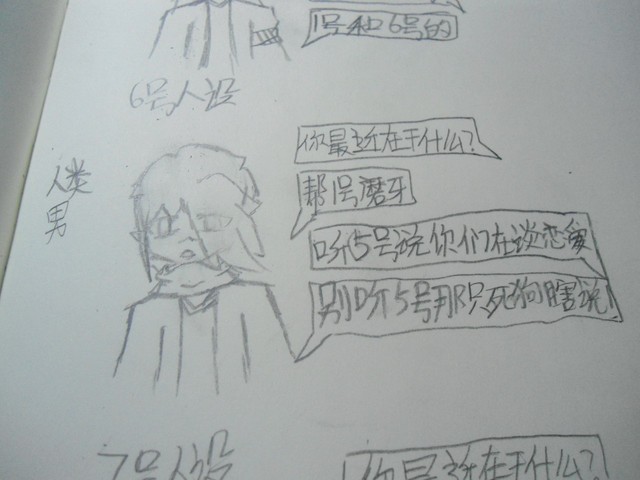 1号和6号的
6号人设
人类
男
你最近在干什么?
帮1号磨牙
听5号说你们在谈恋爱
别听5号那只死狗瞎说
7号人设
你最近在干什么?